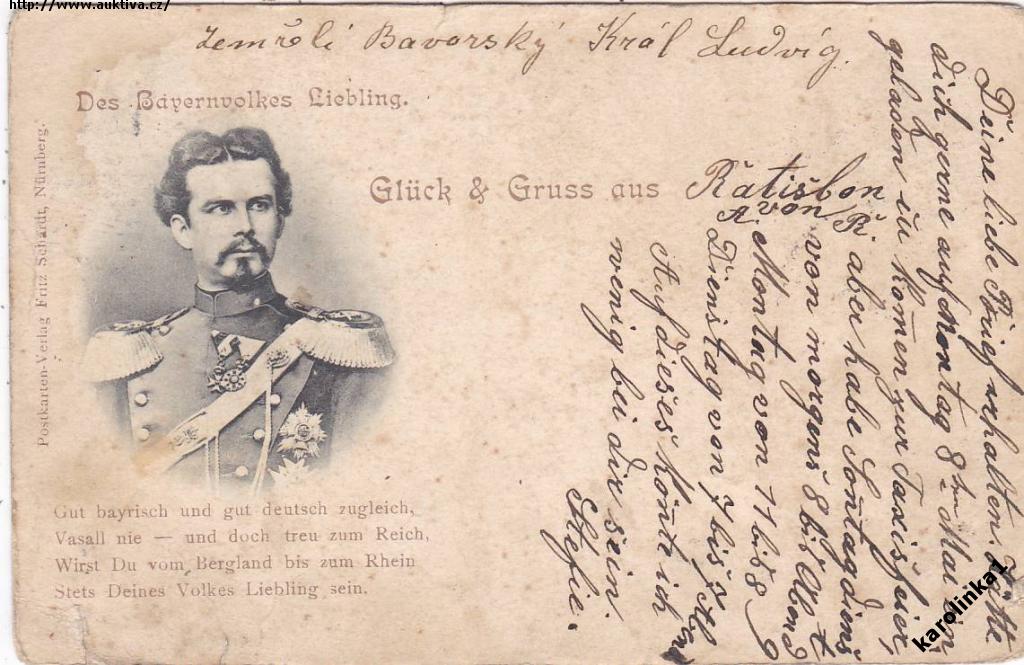 http://www.auktiva.cz/
Zemřelí Bavorský Král Ludvíg.
Des Bayernvolkes Liebling.
Glück & Gruss aus Řatišbon
A. von Ř.
Postkarten-Verlag Fritz Schardt, Nürnberg.
Gut bayrisch und gut deutsch zugleich,
Vasall nie — und doch treu zum Reich,
Wirst Du vom Bergland bis zum Rhein
Stets Deines Volkes Liebling sein.
Deine liebe Brief erhalten. Hätte
dich gerne auf Montag 8ten Mai ein
geladen zu komen zur Taxisfeier,
aber habe Sontagdienst
von morgens 8 bis Abend 9
Montag von 11 bis 8
Dienstag von 7 bis
Auf dieses könte ich
wenig bei dir sein.
Stefie.
karolinka1